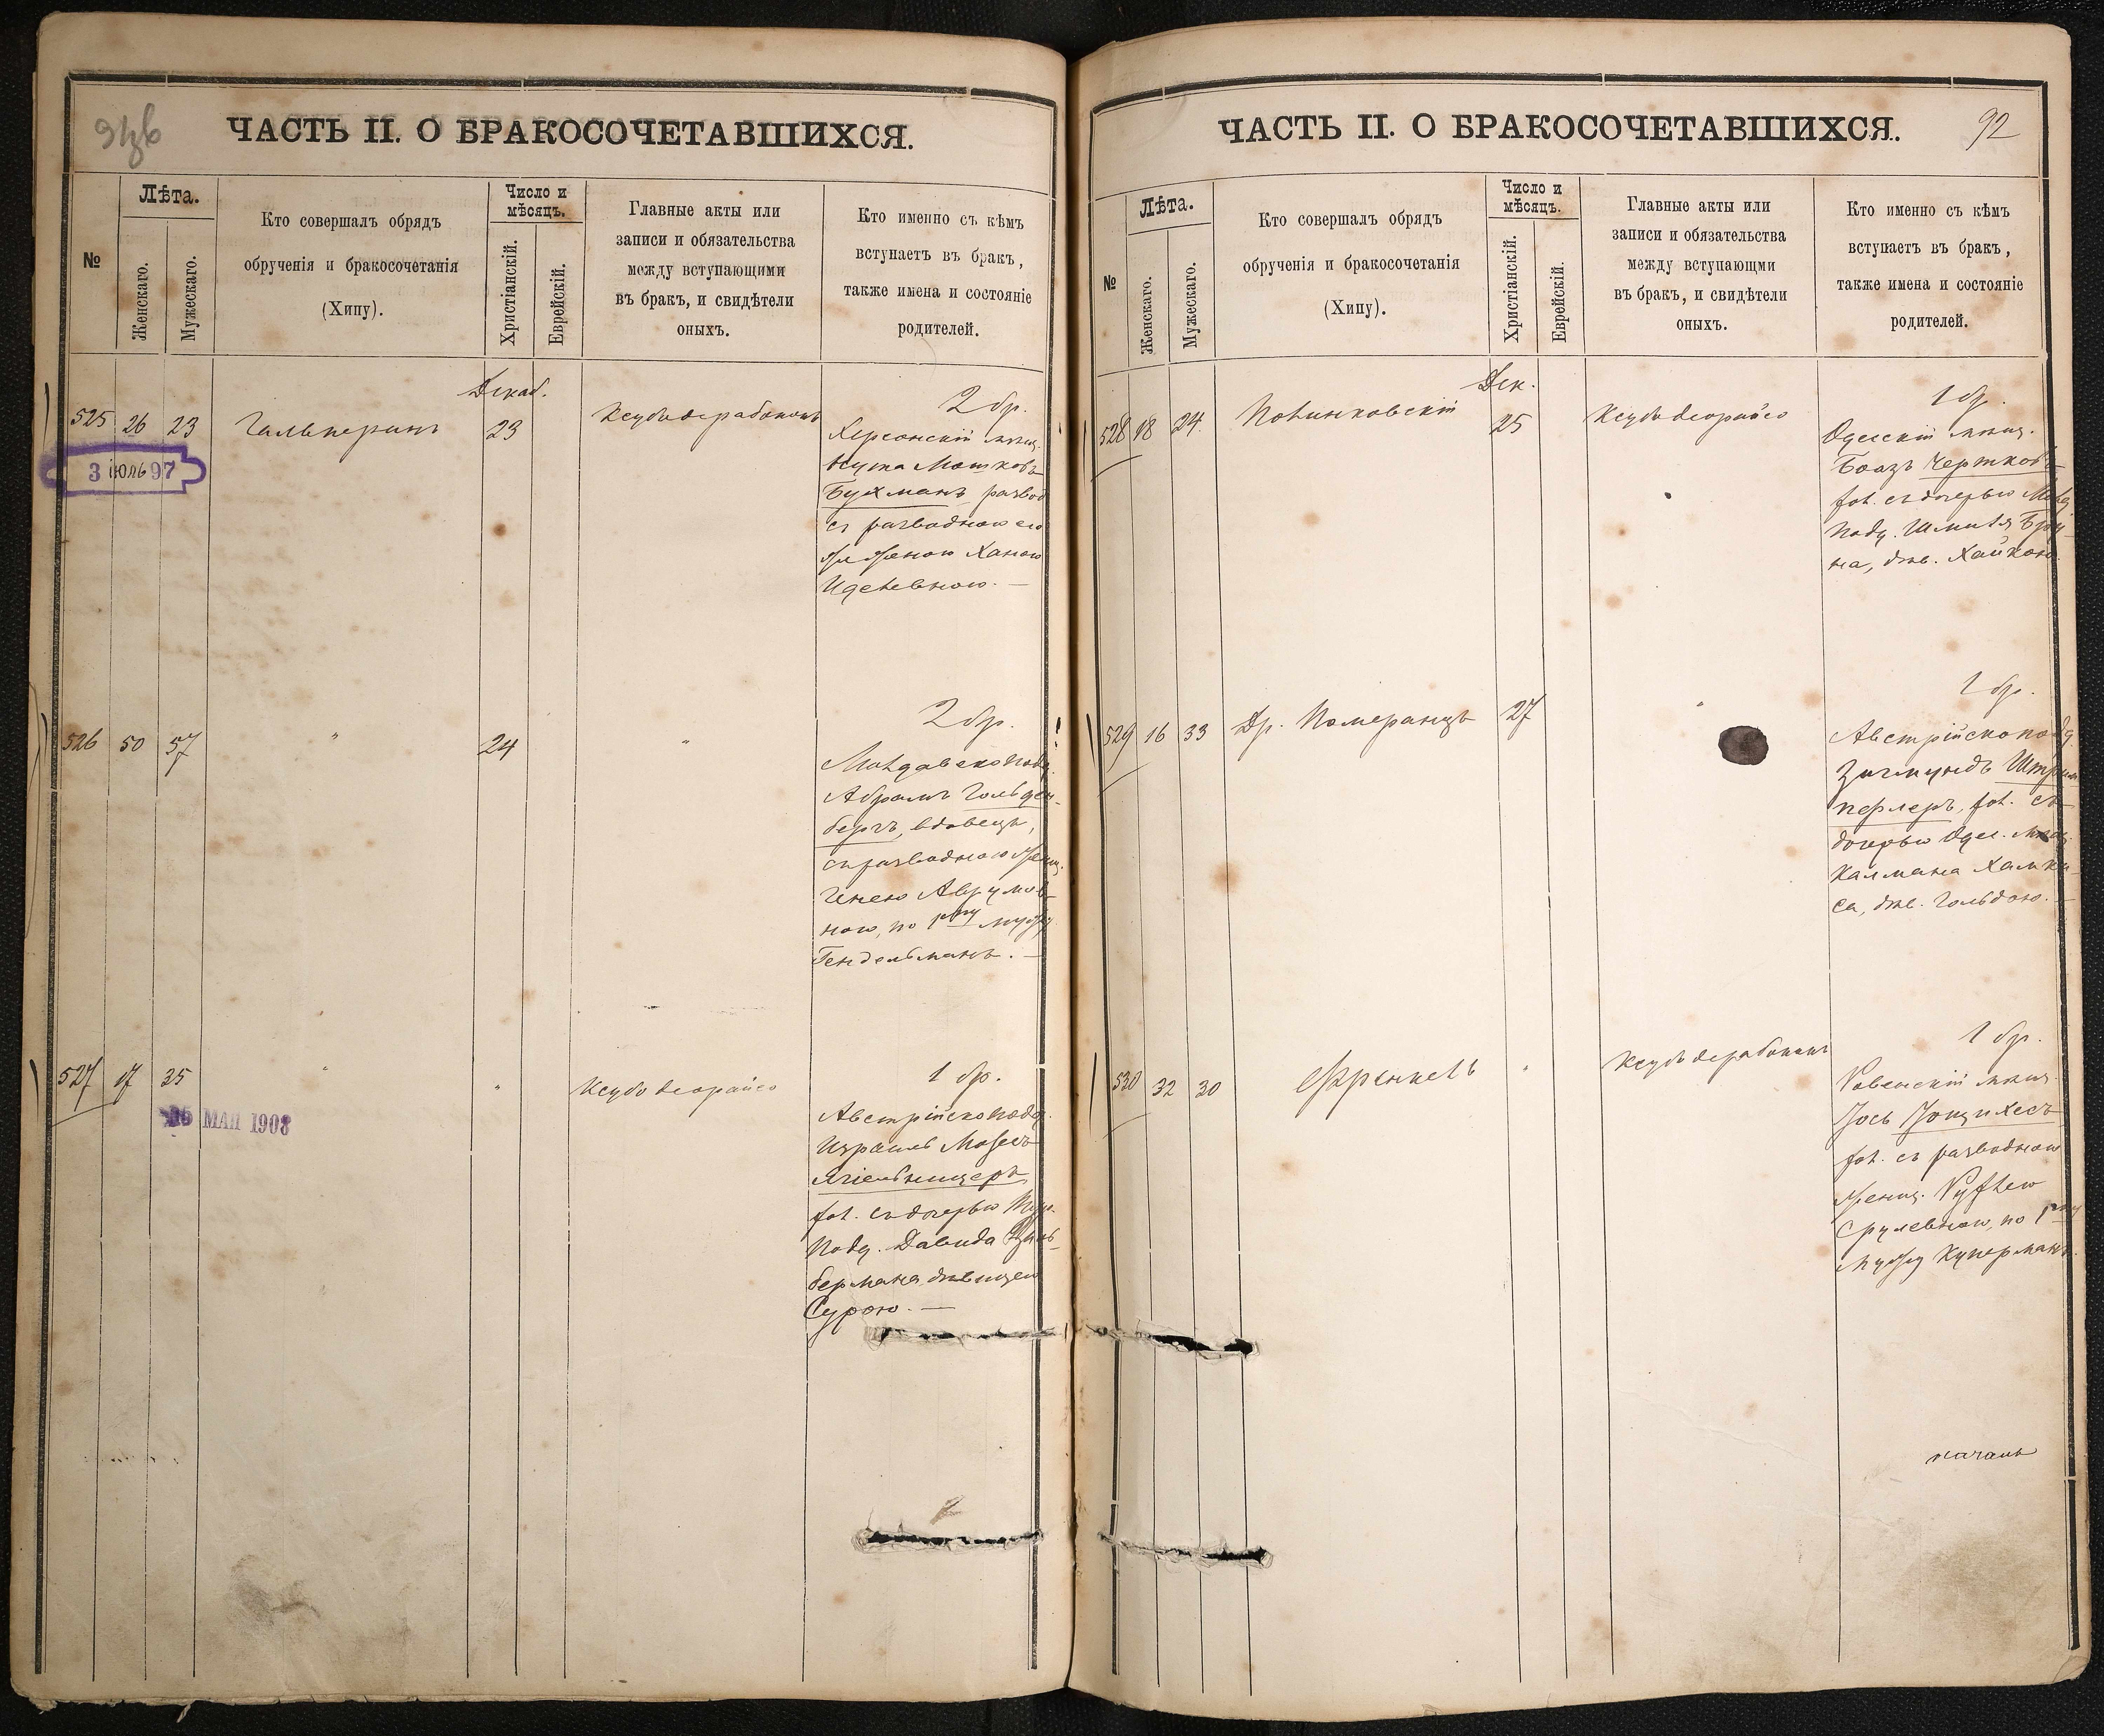 91об
ЧАСТЬ II. О БРАКОСОЧЕТАВШИХСЯ.
№
Лѣта.
Женскаго.
Мужескаго.
Кто совершалъ обрядъ
обрученія и бракосочетанія
(Хипу).
Число и
мѣсяцъ.
Христіанскій.
Еврейскій.
Главные акты или
записи и обязательства
между вступающими
въ бракъ, и свидѣтели
оныхъ.
Кто именно съ кѣмъ
вступаетъ въ бракъ,
также имена и состояніе
родителей.
Декаб.
525 26 23 Гальперинъ 23 Ксубо дерабононъ
3 іюль 97
2 бр.
Херсонскій мѣщ.
Нута Мошковъ
Бухманъ развод
съ разводною его
же женою Ханою
Иделевною. —
526 50 57 " 24 "
2 бр.
Молдавскоподд.
Абрамъ Гольден-
бергъ, вдовецъ,
съ разводною женщ.
Генею Аврумов-
ною, по 1му мужу
Гендельманъ. —
527 17 25 " " Ксубо деорайсо
МАЯ 1908
1 бр.
Австрійскоподд.
Израиль Мозесъ
фол. съ дочерью Тур.
подд. Давида
бермана дѣвицею
Сурою. —
92
ЧАСТЬ II. О БРАКОСОЧЕТАВШИХСЯ.
№
Лѣта.
Женскаго.
Мужескаго.
Кто совершалъ обрядъ
обрученія и бракосочетанія
(Хипу).
Число и
мѣсяцъ.
Христіанскій.
Еврейскій.
Главные акты или
записи и обязательства
между вступающми
въ бракъ, и свидѣтели
оныхъ.
Кто именно съ кѣмъ
вступаетъ въ бракъ,
также имена и состояніе
родителей.
Дек.
528 18 24 Полинковскій 25 Ксубо деорайсо
1 бр.
Одесскій мѣщ.
Боазъ Чертковъ
хол. съ дочерью
подд. Шмиля Бро-
на, дѣв. Хайкою.
529 16 33 Др. Померанцъ 27 "
1 бр.
Австрійскоподд.
Зигмундъ Штрим-
перлеръ, хол. съ
дочерью Одес. мѣщ.
Калмана Хамки-
са, дѣв. Гольдою. —
530 32 30 Френкель " Ксубо дерабононъ
1 бр.
Ровенскій мѣщ.
Іось
хол. съ разводною
женщ. Рухлею
Срулевною, по 1му
мужу Куперманъ.